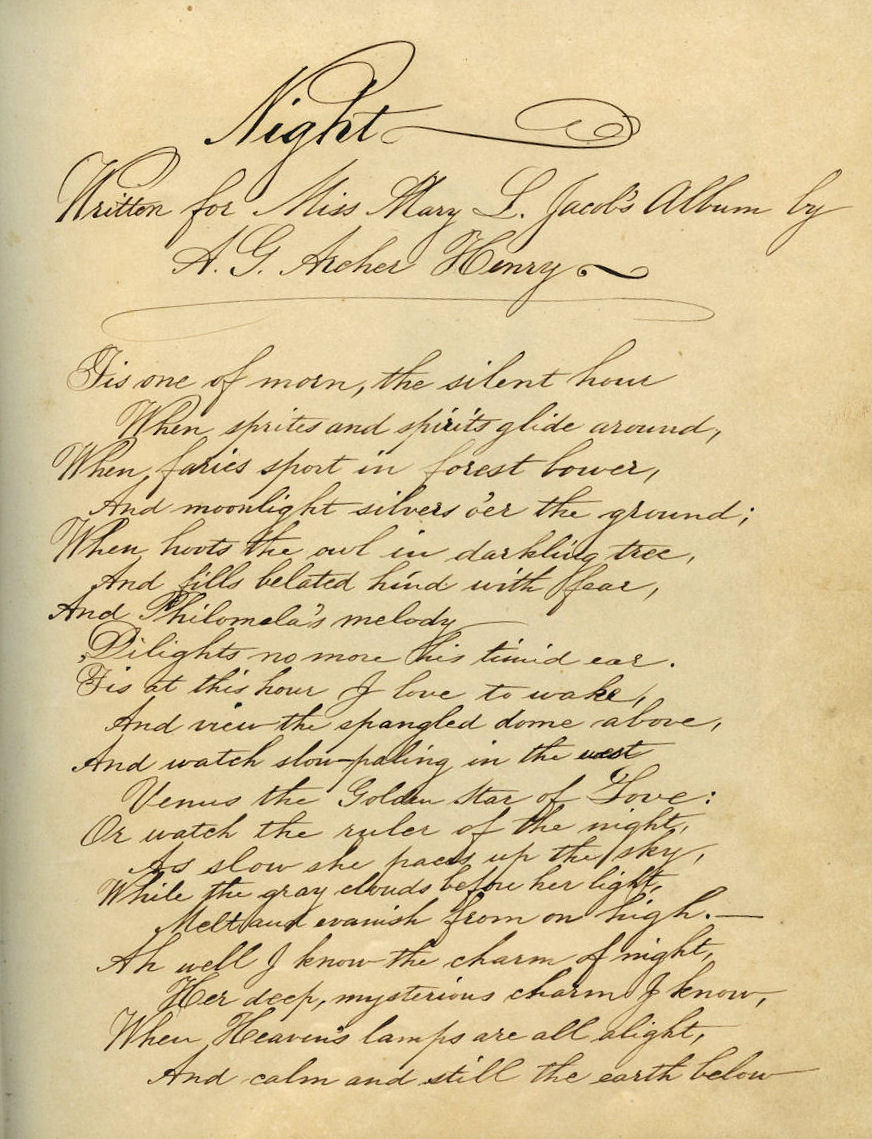 Night
Written for Miss Mary L. Jacob's Album by
A. G. Archer Henry
Tis one of morn, the silent hour
When sprites and spirits glide around,
When faries sport in forest bower,
And moonlight silvers o'er the ground;
When hoots the owl in darkling tree,
And fills belated hind with fear,
And Philomela's melody
Dilights no more his timid ear.
Tis at this hour I love to wake,
And view the spangled dome above,
And watch slow-paling in the west
Venus the Golden Star of Love:
Or watch the ruler of the night,
As slow she paces up the sky,
While the gray clouds before her light,
Melt and evanish from on high.—
Ah well I know the charm of night,
Her deep, mysterious charm I know,
When Heaven's lamps are all alight,
And calm and still the earth below